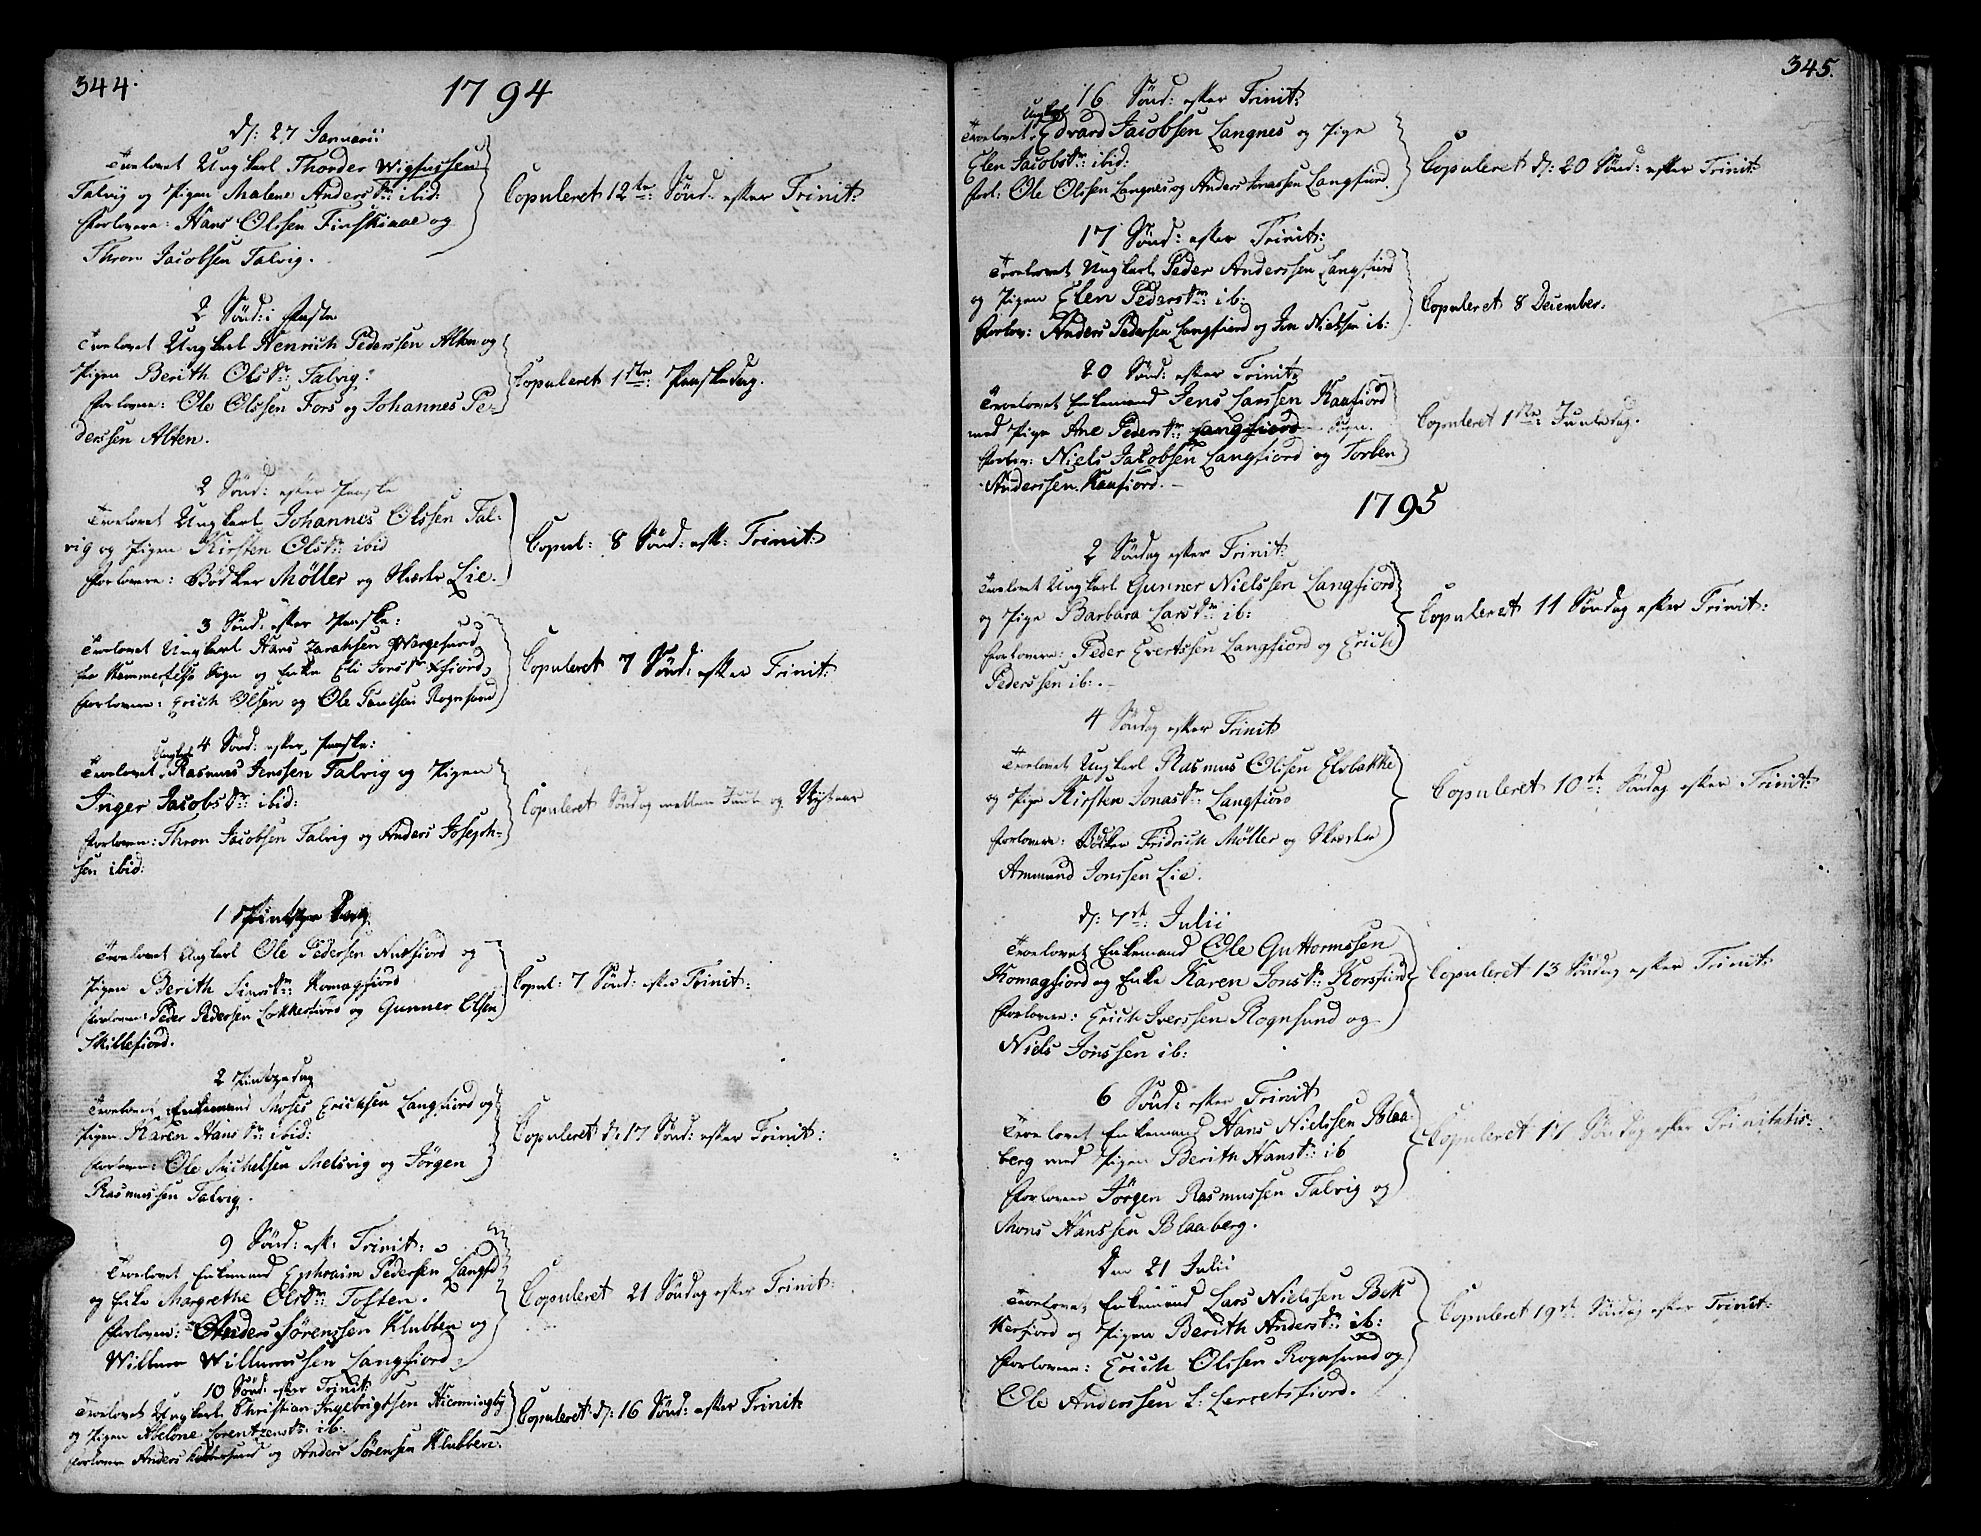 344.
1794
d: 27 Januarii
Trolovet Ungkarl Thorder Wigfussen
Talvig og Pigen Malene Andersdr: ibid:
Forlovere: Hans Olssen Finskiaae og
Thron Jacobsen Talvig.
Copuleret 12te Sönd: efter Trinit:
2 Sönd: i Faste
Trolovet Ungkarl Henrich Pederssen Alten og
Pigen Berith Olsdr: Talvig:
Forlovere: Ole Olssen Fors og Johannes Pe-
derssen Alten.
Copuleret 1ste Paaskedag.
2 Sönd: efter Paaske
Trolovet Ungkarl Johannes Olssen Tal-
vig og Pigen Kirsten Olsdr: ibid
Forlovere: Bödker Möller og Skarle Lie.
Copul: 8 Sönd: eft: Trinit:
3 Sönd: efter Paaske:
Trolovet Ungkarl Hans Zarahsen Wargesund
fra Hammerfest Sogn og Enke Eli Jonsdr
Forlovere: Erich Olsen og Ole Paulsen Rognsund
Copuleret 7 Sönd: efter Trinit:
4 Sönd: efter Paaske:
Trolovet Ungkarl Rasmus Jenssen Talvig og Pigen
Inger Jacobsdr: ibid:
Forlovere: Thron Jacobsen Talvig og Anders Joseph-
sen ibid:
Copuleret Söndag mellem Juul og Nytaar
1 Pintze Dag
Trolovet Ungkarl Ole Pedersen Nufsfiord og
Pigen Berith Siversdr: Komagfiord
Forlovere: Peder Pedersen Lokkerfiord og Gunner Olsen
Skillefiord.
Copul: 7 Sönd: efter Trinit:
2 Pintzedag
Trolovet Enkemand Moses Erichsen Langfiord og
Pigen Karen Hansdr: ibid:
Forlovere: Ole Michelsen Melsvig og Jörgen
Rasmussen Talvig.
Copuleret d: 17 Sönd: efter Trinit:
9 Sönd: eft: Trinit:
Trolovet Enkemand Ephraim Pedersen Langfd
og Enke Margrethe Olsdr: Toften.
Forlovere: Anders Sörenssen Klubben og
Willum Willumssen Langfiord.
Copuleret 21 Söndag efter Trinit:
10 Sönd: efter Trinit:
Trolovet Ungkarl Christian Ingebrigtsen
og Pigen Abelone Lorentzensdr: ib:
Forlovere Anders og Anders Sörensen Klubben.
Copuleret d: 16 Sönd: efter Trinit:
345.
16 Sönd: efter Trinit:
Trolovet Ungkarl Edvard Jacobsen Langnes og Pige
Elen Jacobsdr: ibid:
Forl: Ole Olssen Langnes og Anders Jonassen Langfiord.
Copuleret d: 20 Sönd: efter Trinit:
17 Sönd: efter Trinit:
Trolovet Ungkarl Peder Anderssen Langfiord
og Pigen Elen Pedersdr: ib:
Forlov: Anders Pedersen Langfiord og Jon Nielsen ib:
Copuleret 8 December.
20 Sönd: efter Trinit:
Trolovet Enkemand Jens Larssen Kaafiord
med Pige Ane Pedersdr: Langfiord Sogn.
Forlov: Niels Jacobsen Langfiord og Torben
Anderssen Kaafiord.
Copuleret 1ste Juuledag.
1795
2 Söndag efter Trinit:
Trolovet Ungkarl Gunner Nielssen Langfiord
og Pige Barbara Larsdr: ib:
Forlovere: Peder Evertssen Langfiord og Erich
Pederssen ib:
Copuleret 11 Söndag efter Trinit:
4 Söndag efter Trinit
Trolovet Ungkarl Rasmus Olssen Elvbakke
og Pige Kirsten Jonasdr: Langfiord
Forlovere: Bödker Fridrich Möller og
Ammund Jonssen Lie.
Copuleret 10de Söndag efter Trinit:
d: 7de Julii
Trolovet Enkemand Ole Guttormssen
Komagfiord og Enke Karen Jonsdr: Korsfiord
Forlovere: Erich Iverssen Rognsund og
Niels Jonssen ib:
Copuleret 13 Söndag efter Trinit:
6 Sönd: efter Trinit
Trolovet Enkemand Hans Nielssen Blaa-
berg med Pigen Berith Hansdr: ib
Forlovere Jörgen Rasmussen Talvig og
Mons Hanssen Blaaberg.
Copuleret 17 Söndag efter Trinitatis:
Den 21 Julii
Trolovet Enkemand Lars Nielssen Bek
kerfiord og Pigen Berith Andersdr: ib:
Forlovere: Erich Olssen Rognsund og
Ole Anderssen L: Lerretsfiord.
Copuleret 19de Söndag efter Trinit: